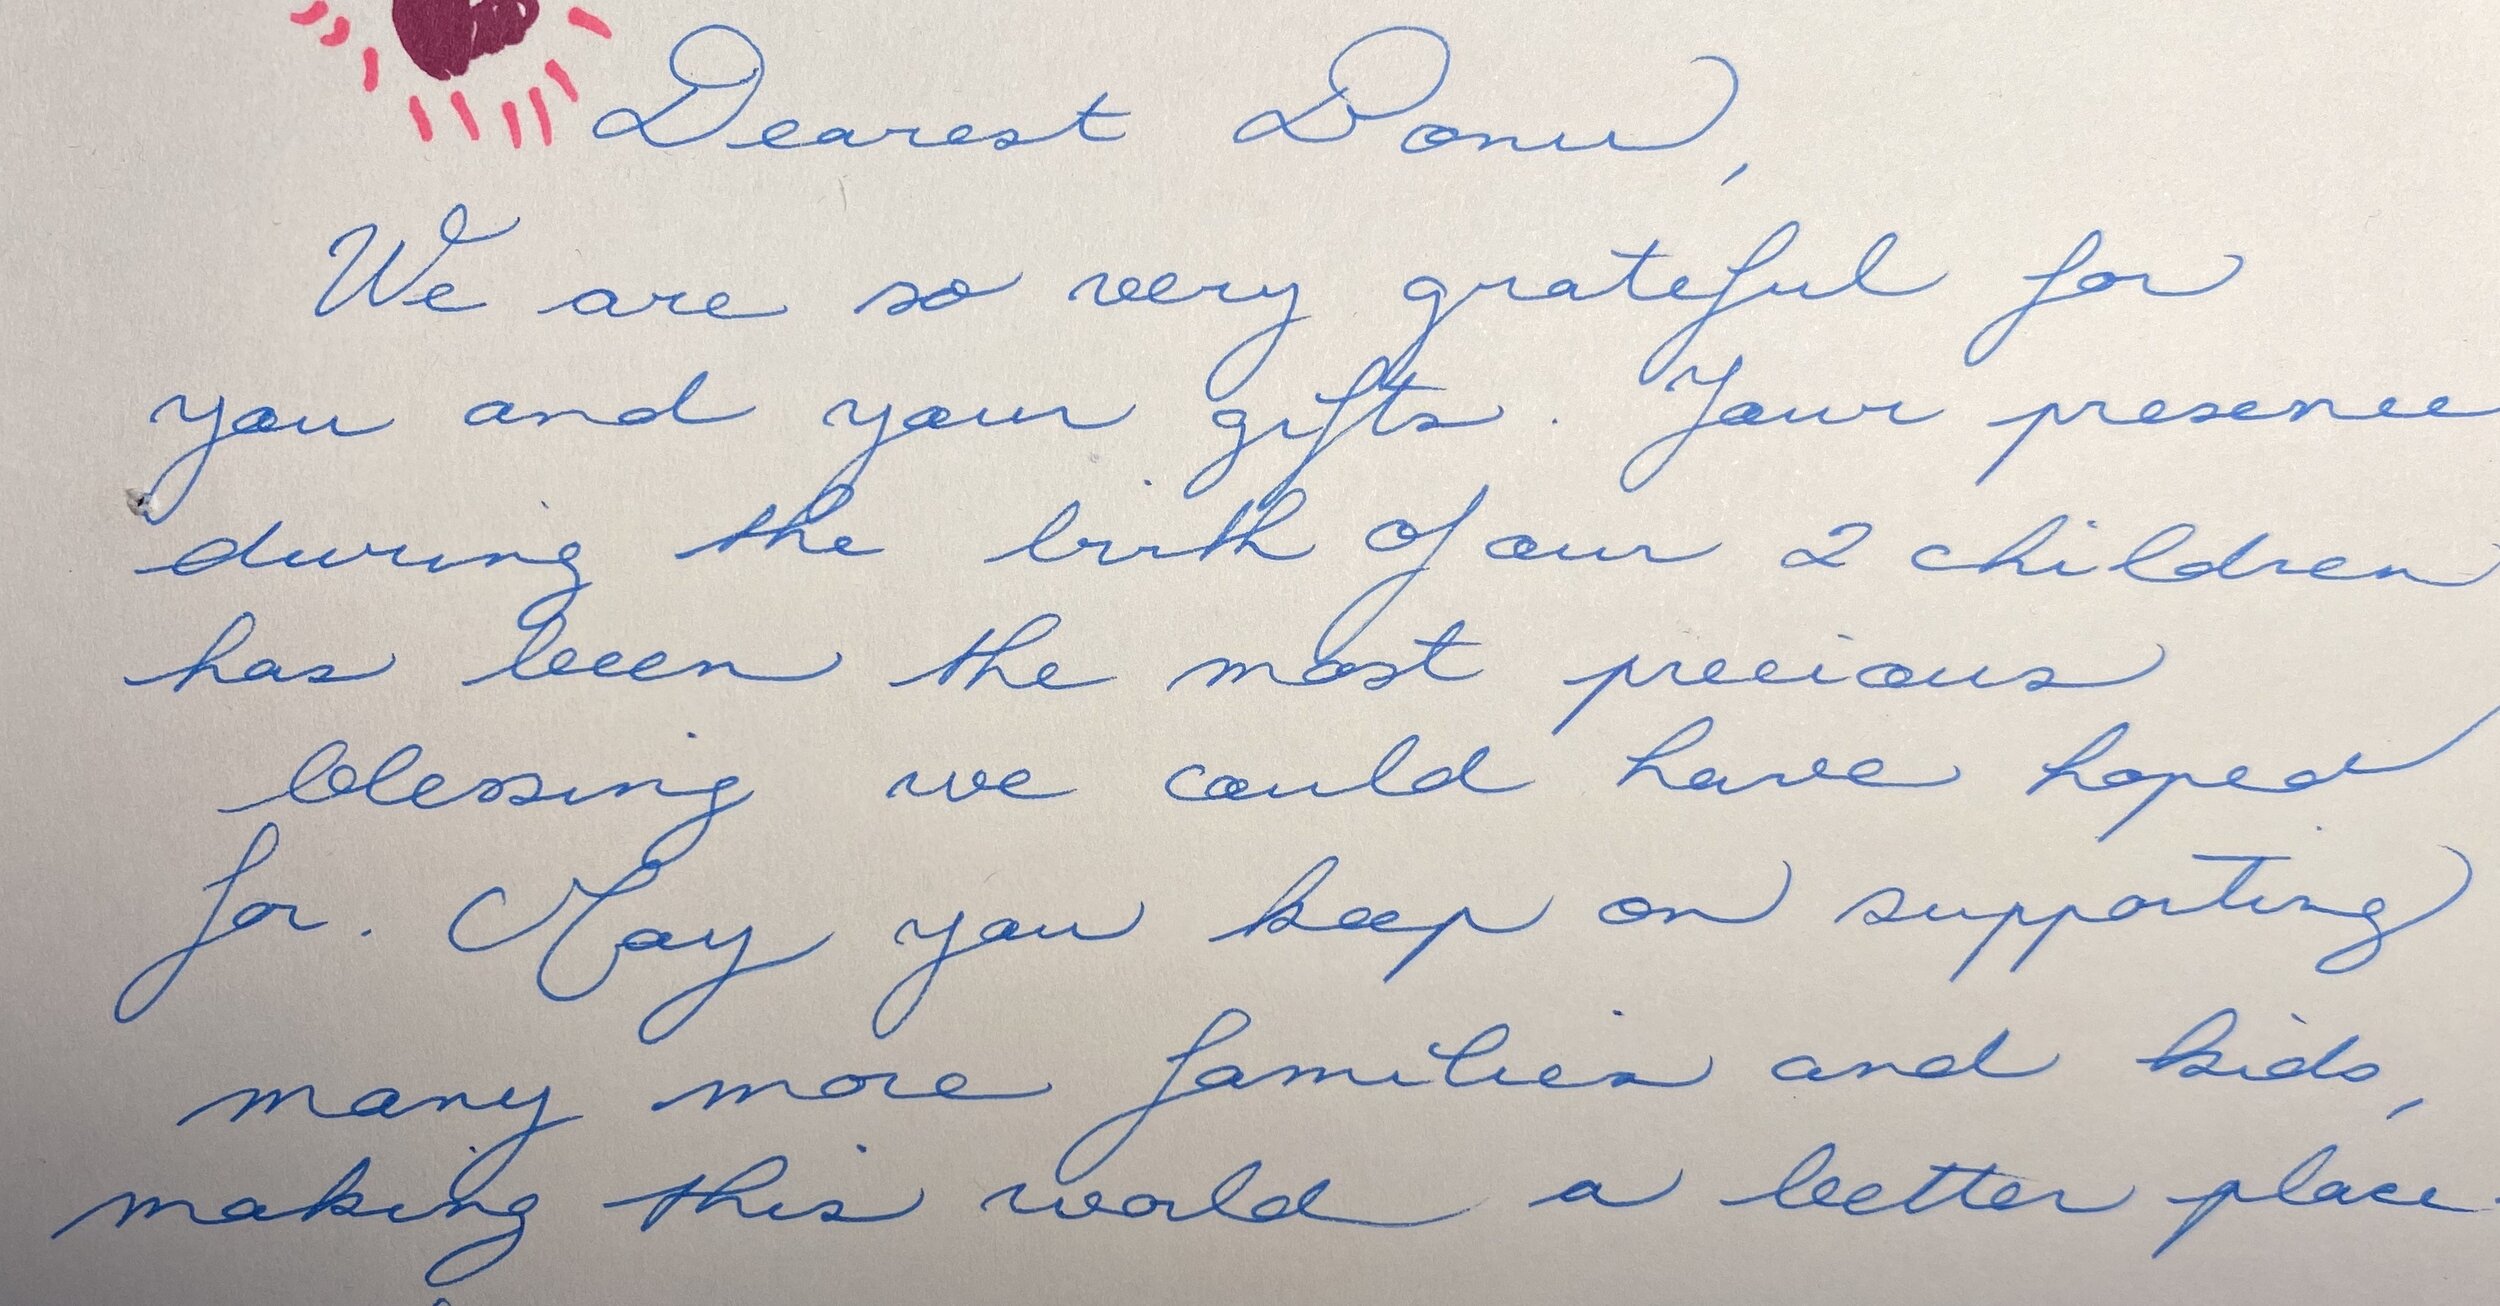 Dearest Donu,
We are so very grateful for
you and your gifts. Your presence
during the birth of our 2 children
has been the most precious
blessing we could have hoped
for. May you keep on supporting
many more families and kids,
making this world a better place.